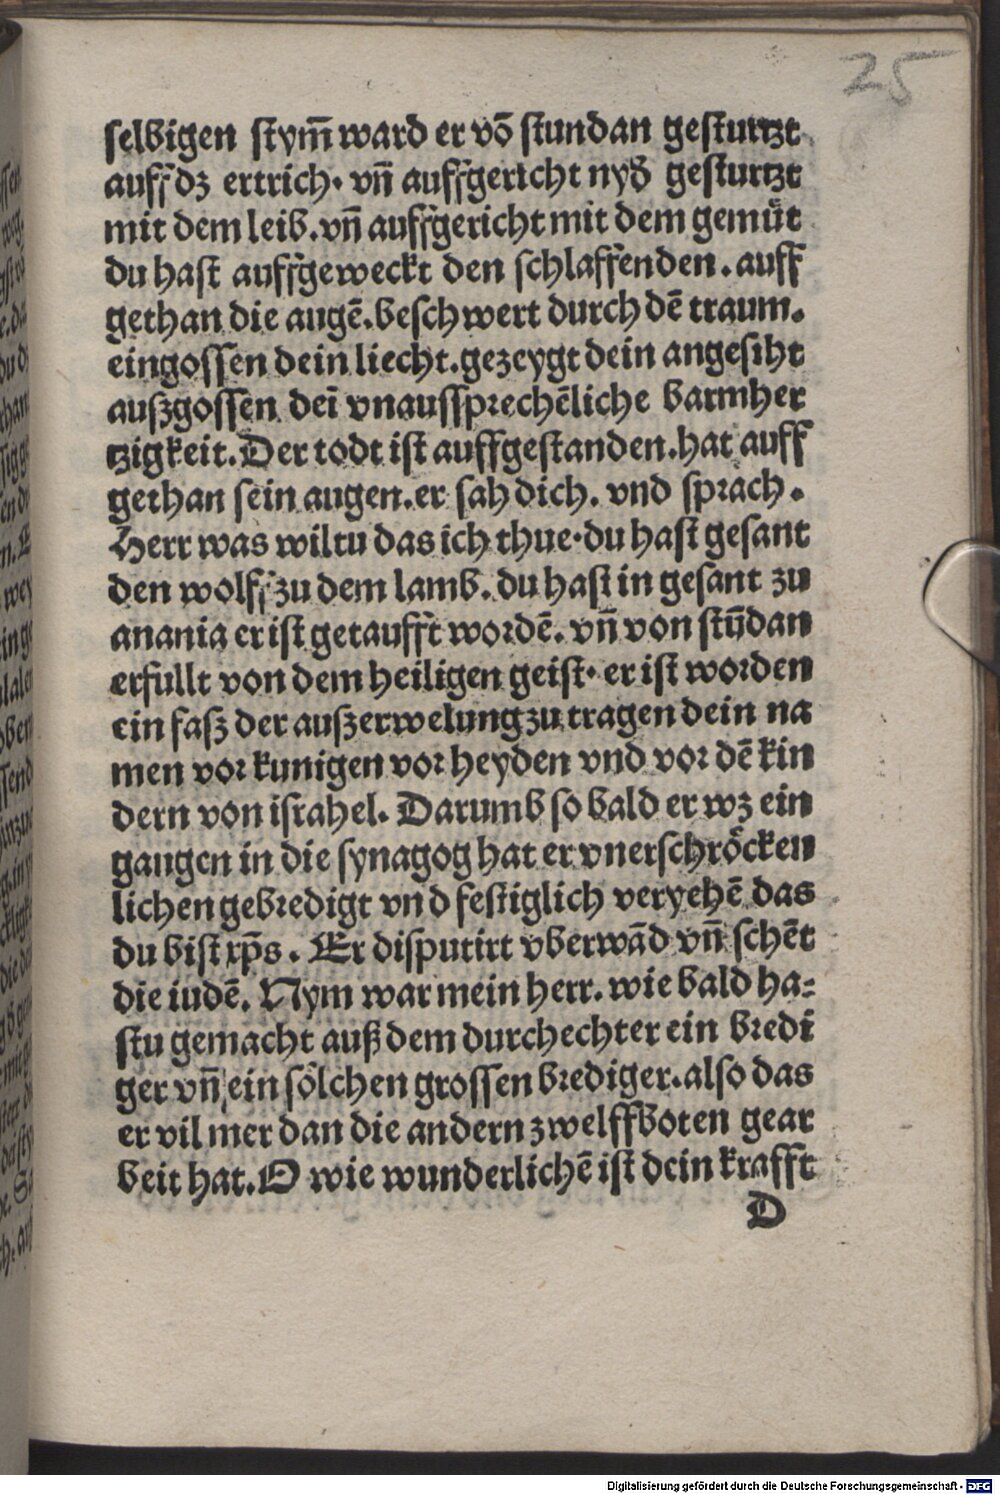 25
selbigen stym̄ ward er vō stund an gesturtzt
auff dz ertrich. vn̄ auffgericht nyd̄ gesturtzt
mit dem leib. vn̄ auffgericht mit dem gemuͤt
du hast auffgeweckt den schlaffenden. auff
gethan die augē. beschwert durch dē traum.
eingossen dein liecht. gezeygt dein angesiht
außgossen deī vnaussprechēliche barmher
tzigkeit. Der todt ist auffgestanden. hat auff
gethan sein augen. er sah dich. vnd sprach.
Herr was wiltu das ich thue. du hast gesant
den wolff zu dem lamb. du hast in gesant zu
anania er ist getaufft wordē. vn̄ von stūdan
erfullt von dem heiligen geist. er ist worden
ein faß der außerwelung zu tragen dein na
men vor kunigen vor heyden vnd vor dē kin
dern von israhel. Darumb so bald er wz ein
gangen in die synagog hat er vnerschroͤcken
lichen gebredigt vnd festiglich veryehē das
du bist xp̄s. Er disputirt vberwād vn̄ schēt
die iudē. Nym war mein herr. wie bald ha⸗
stu gemacht auß dem durchechter ein bredi
ger vn̄ ein soͤlchen grossen brediger. also das
er vil mer dan die andern zwelffboten gear
beit hat. O wie wunderlichē ist dein krafft
D
Digitalisierung gefördert durch die Deutsche Forschungsgemeinschaft - DFG